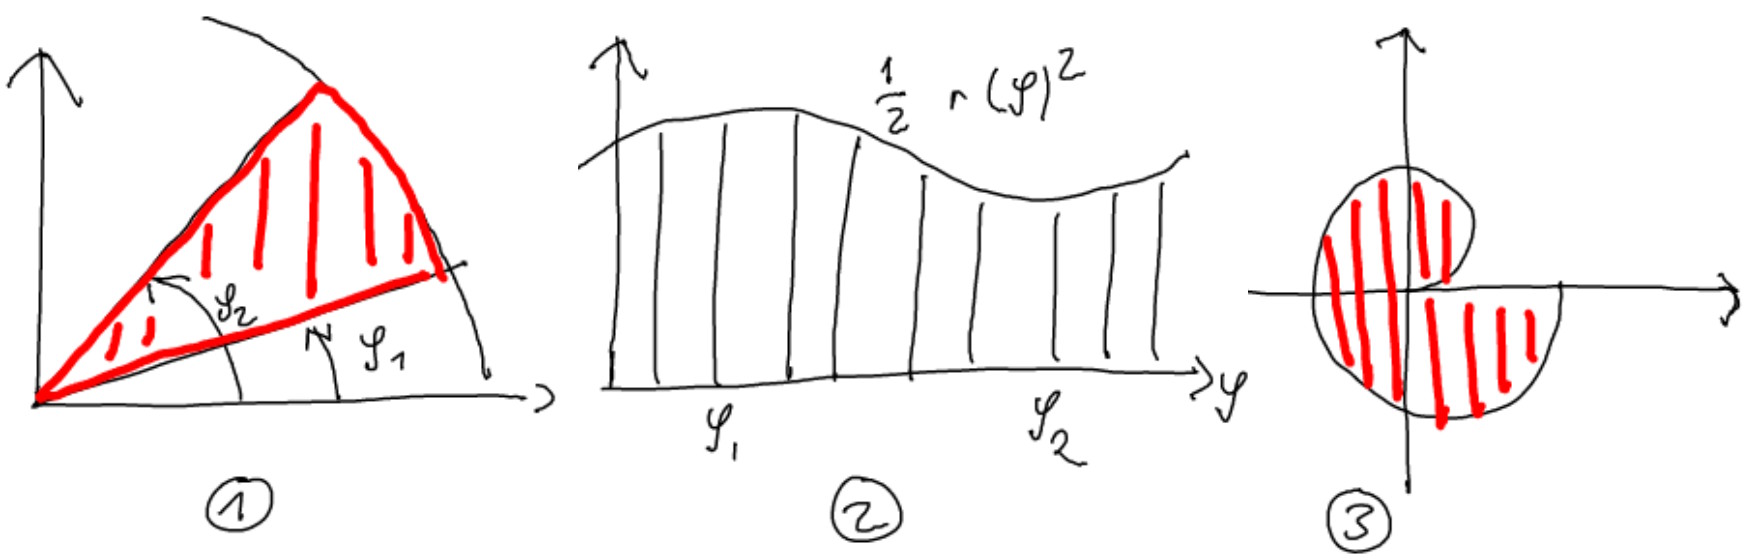 φ₂
φ₁
1/2 r(φ)²
φ
φ₁
φ₂
①
②
③